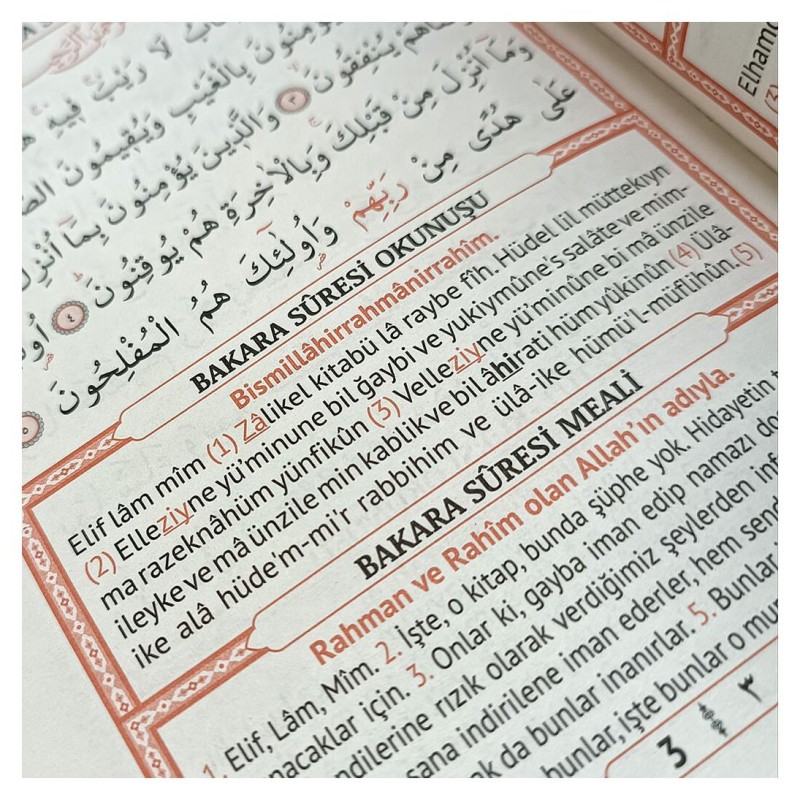 لَا رَيْبَ فِيهِ
يُؤْمِنُونَ بِالْغَيْبِ وَيُقِيمُونَ
يُنْفِقُونَ ٣ وَالَّذِينَ يُؤْمِنُونَ بِمَا أُنْزِلَ
وَمَا أُنْزِلَ مِنْ قَبْلِكَ وَبِالْاٰخِرَةِ هُمْ يُوقِنُونَ ٤
عَلٰى هُدًى مِنْ رَبِّهِمْ وَأُولٰئِكَ هُمُ الْمُفْلِحُونَ
BAKARA SÛRESİ OKUNUŞU
Bismillâhirrahmânirrahîm.
Elif lâm mîm (1) Zâlikel kitabü lâ raybe fîh. Hüdel lil müttekıyn
(2) Elleziyne yü'minune bil ğaybi ve yukiymûne's salâte ve mim-
ma razeknâhüm yünfikûn (3) Velleziyne yü'minûne bi mâ ünzile
ileyke ve mâ ünzile min kablik ve bil âhirati hüm yûkinûn (4) Ülâ-
ike alâ hüde'm-mi'r rabbihim ve ülâ-ike hümü'l-müflihûn. (5)
BAKARA SÛRESİ MEALİ
Rahman ve Rahîm olan Allah'ın adıyla.
1. Elif, Lâm, Mîm. 2. İşte, o kitap, bunda şüphe yok. Hidayetin
nacaklar için. 3. Onlar ki, gayba iman edip namazı
ndilerine rızık olarak verdiğimiz şeylerden
sana indirilene iman ederler, hem
ok da bunlar inanırlar. 5. Bunlar
bunlar, işte bunlar o
3 ٣